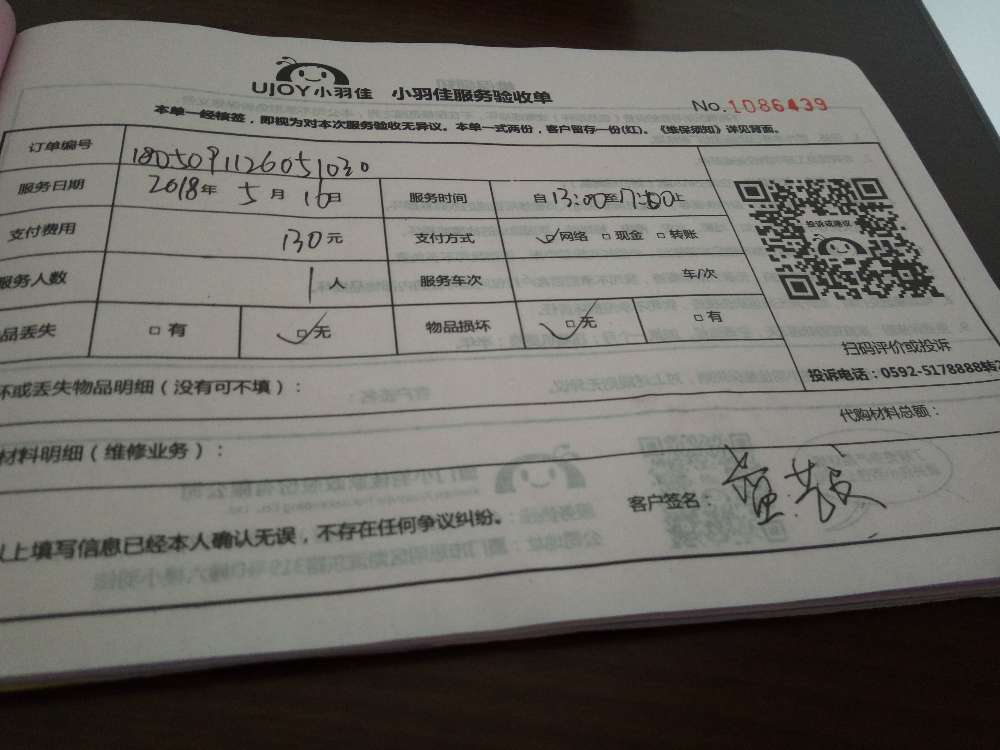 UJOY小羽佳 小羽佳服务验收单
No.1086439
本单一经核签，即视为对本次服务验收无异议。本单一式两份，客户留存一份(红)。《维保须知》详见背面。
订单编号 1805091126051030
服务日期 2018年 5月 10日 服务时间 自13:00至17:00止
支付费用 130元 支付方式 ☑网络 □现金 □转账
服务人数 1人 服务车次 车/次
品丢失 □有 ☑无 物品损坏 ☑无 □有
投诉或建议
扫码评价或投诉
投诉电话：0592-5178888转2
坏或丢失物品明细（没有可不填）：
代购材料总额：
材料明细（维修业务）：
以上填写信息已经本人确认无误，不存在任何争议纠纷。
客户签名：